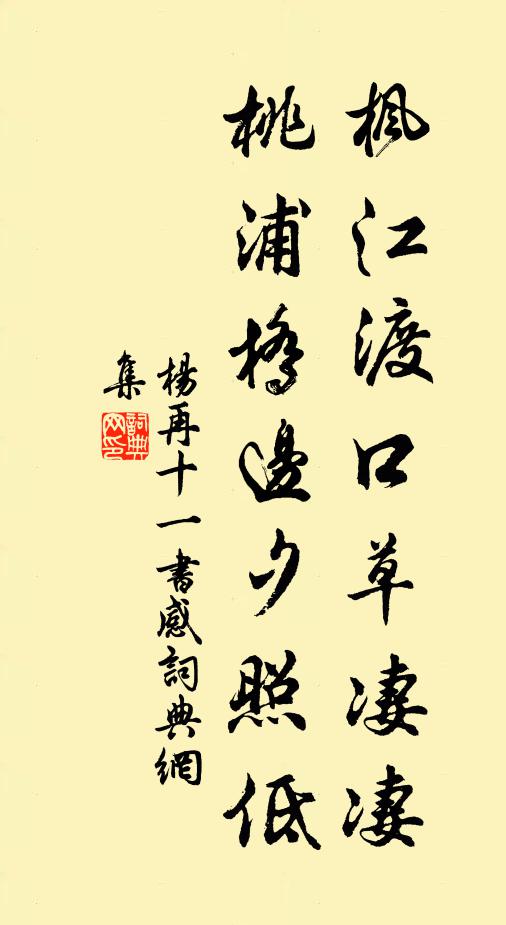 楓江渡口草淒淒
桃浦橋邊夕照低
楊再十一書感詞典網
集
詞典
网印